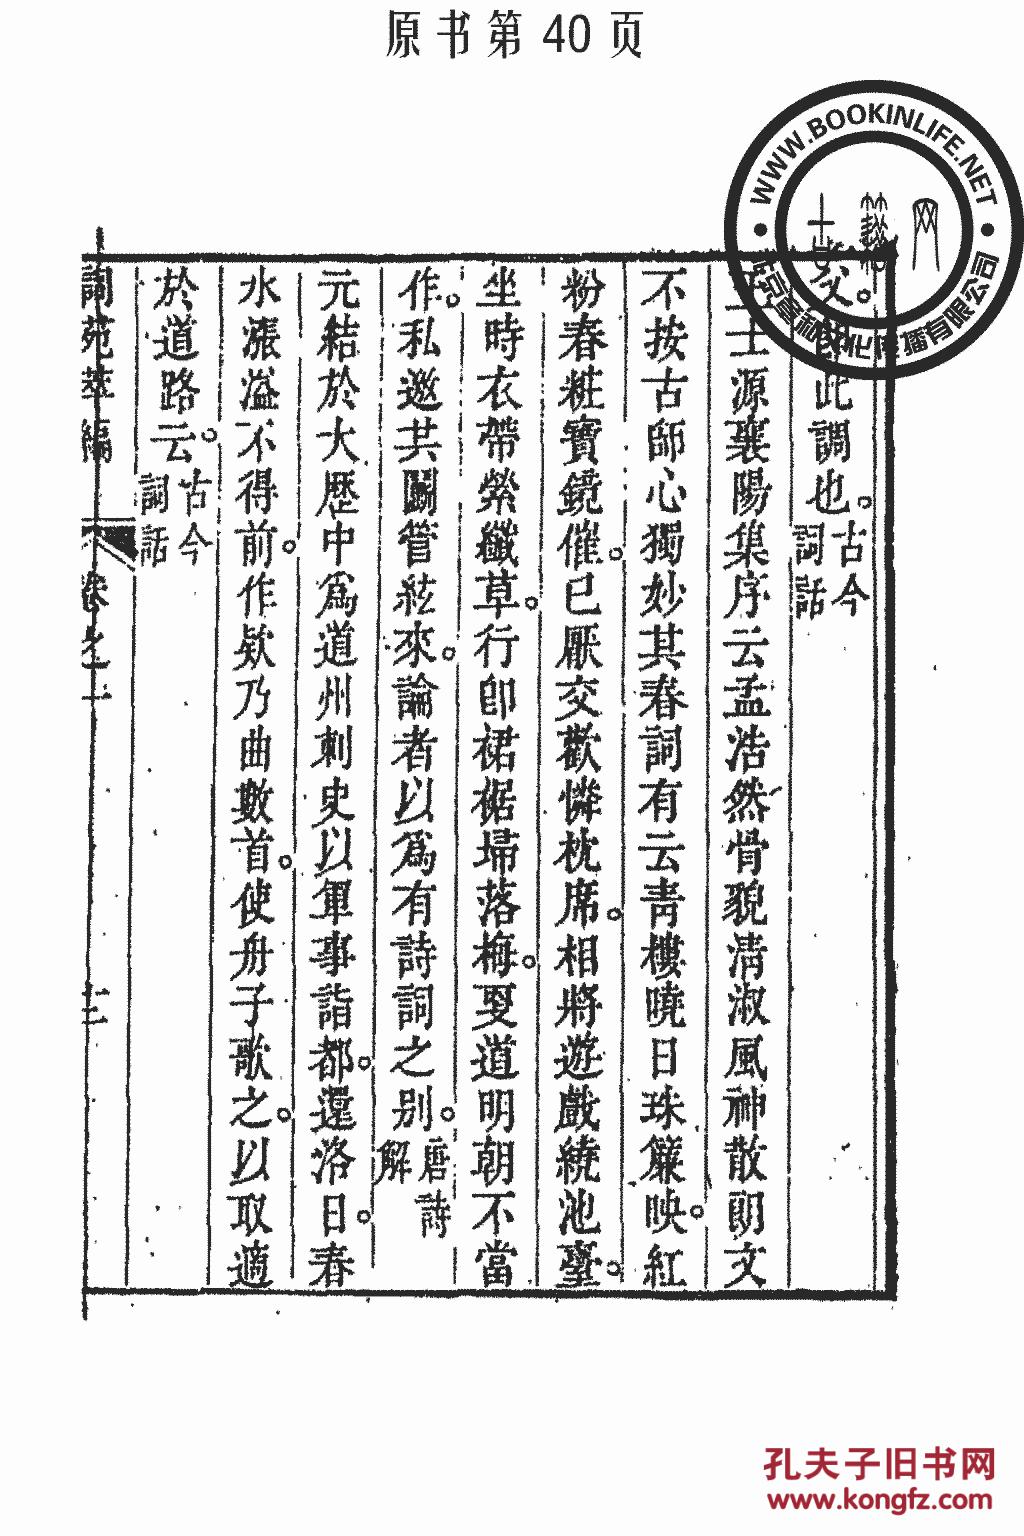 原书第40页
WWW.BOOKINLIFE.NET
父。即此調也。古今詞話
王士源襄陽集序云孟浩然骨貌清淑風神散朗文
不按古師心獨妙其春詞有云青樓曉日珠簾映。紅
粉春粧寶鏡催。已厭交歡憐枕席。相將遊戲繞池臺。
坐時衣帶縈纖草。行卽裙裾埽落梅。更道明朝不當
作。私邀共鬭管絃來。論者以爲有詩詞之别。唐詩解
元結於大歷中爲道州刺史以軍事詣都。還洛日。春
水漲溢不得前。作欸乃曲數首。使舟子歌之。以取適
於道路云。古今詞話
詞苑萃編
卷之一
十二
孔夫子旧书网
www.kongfz.com